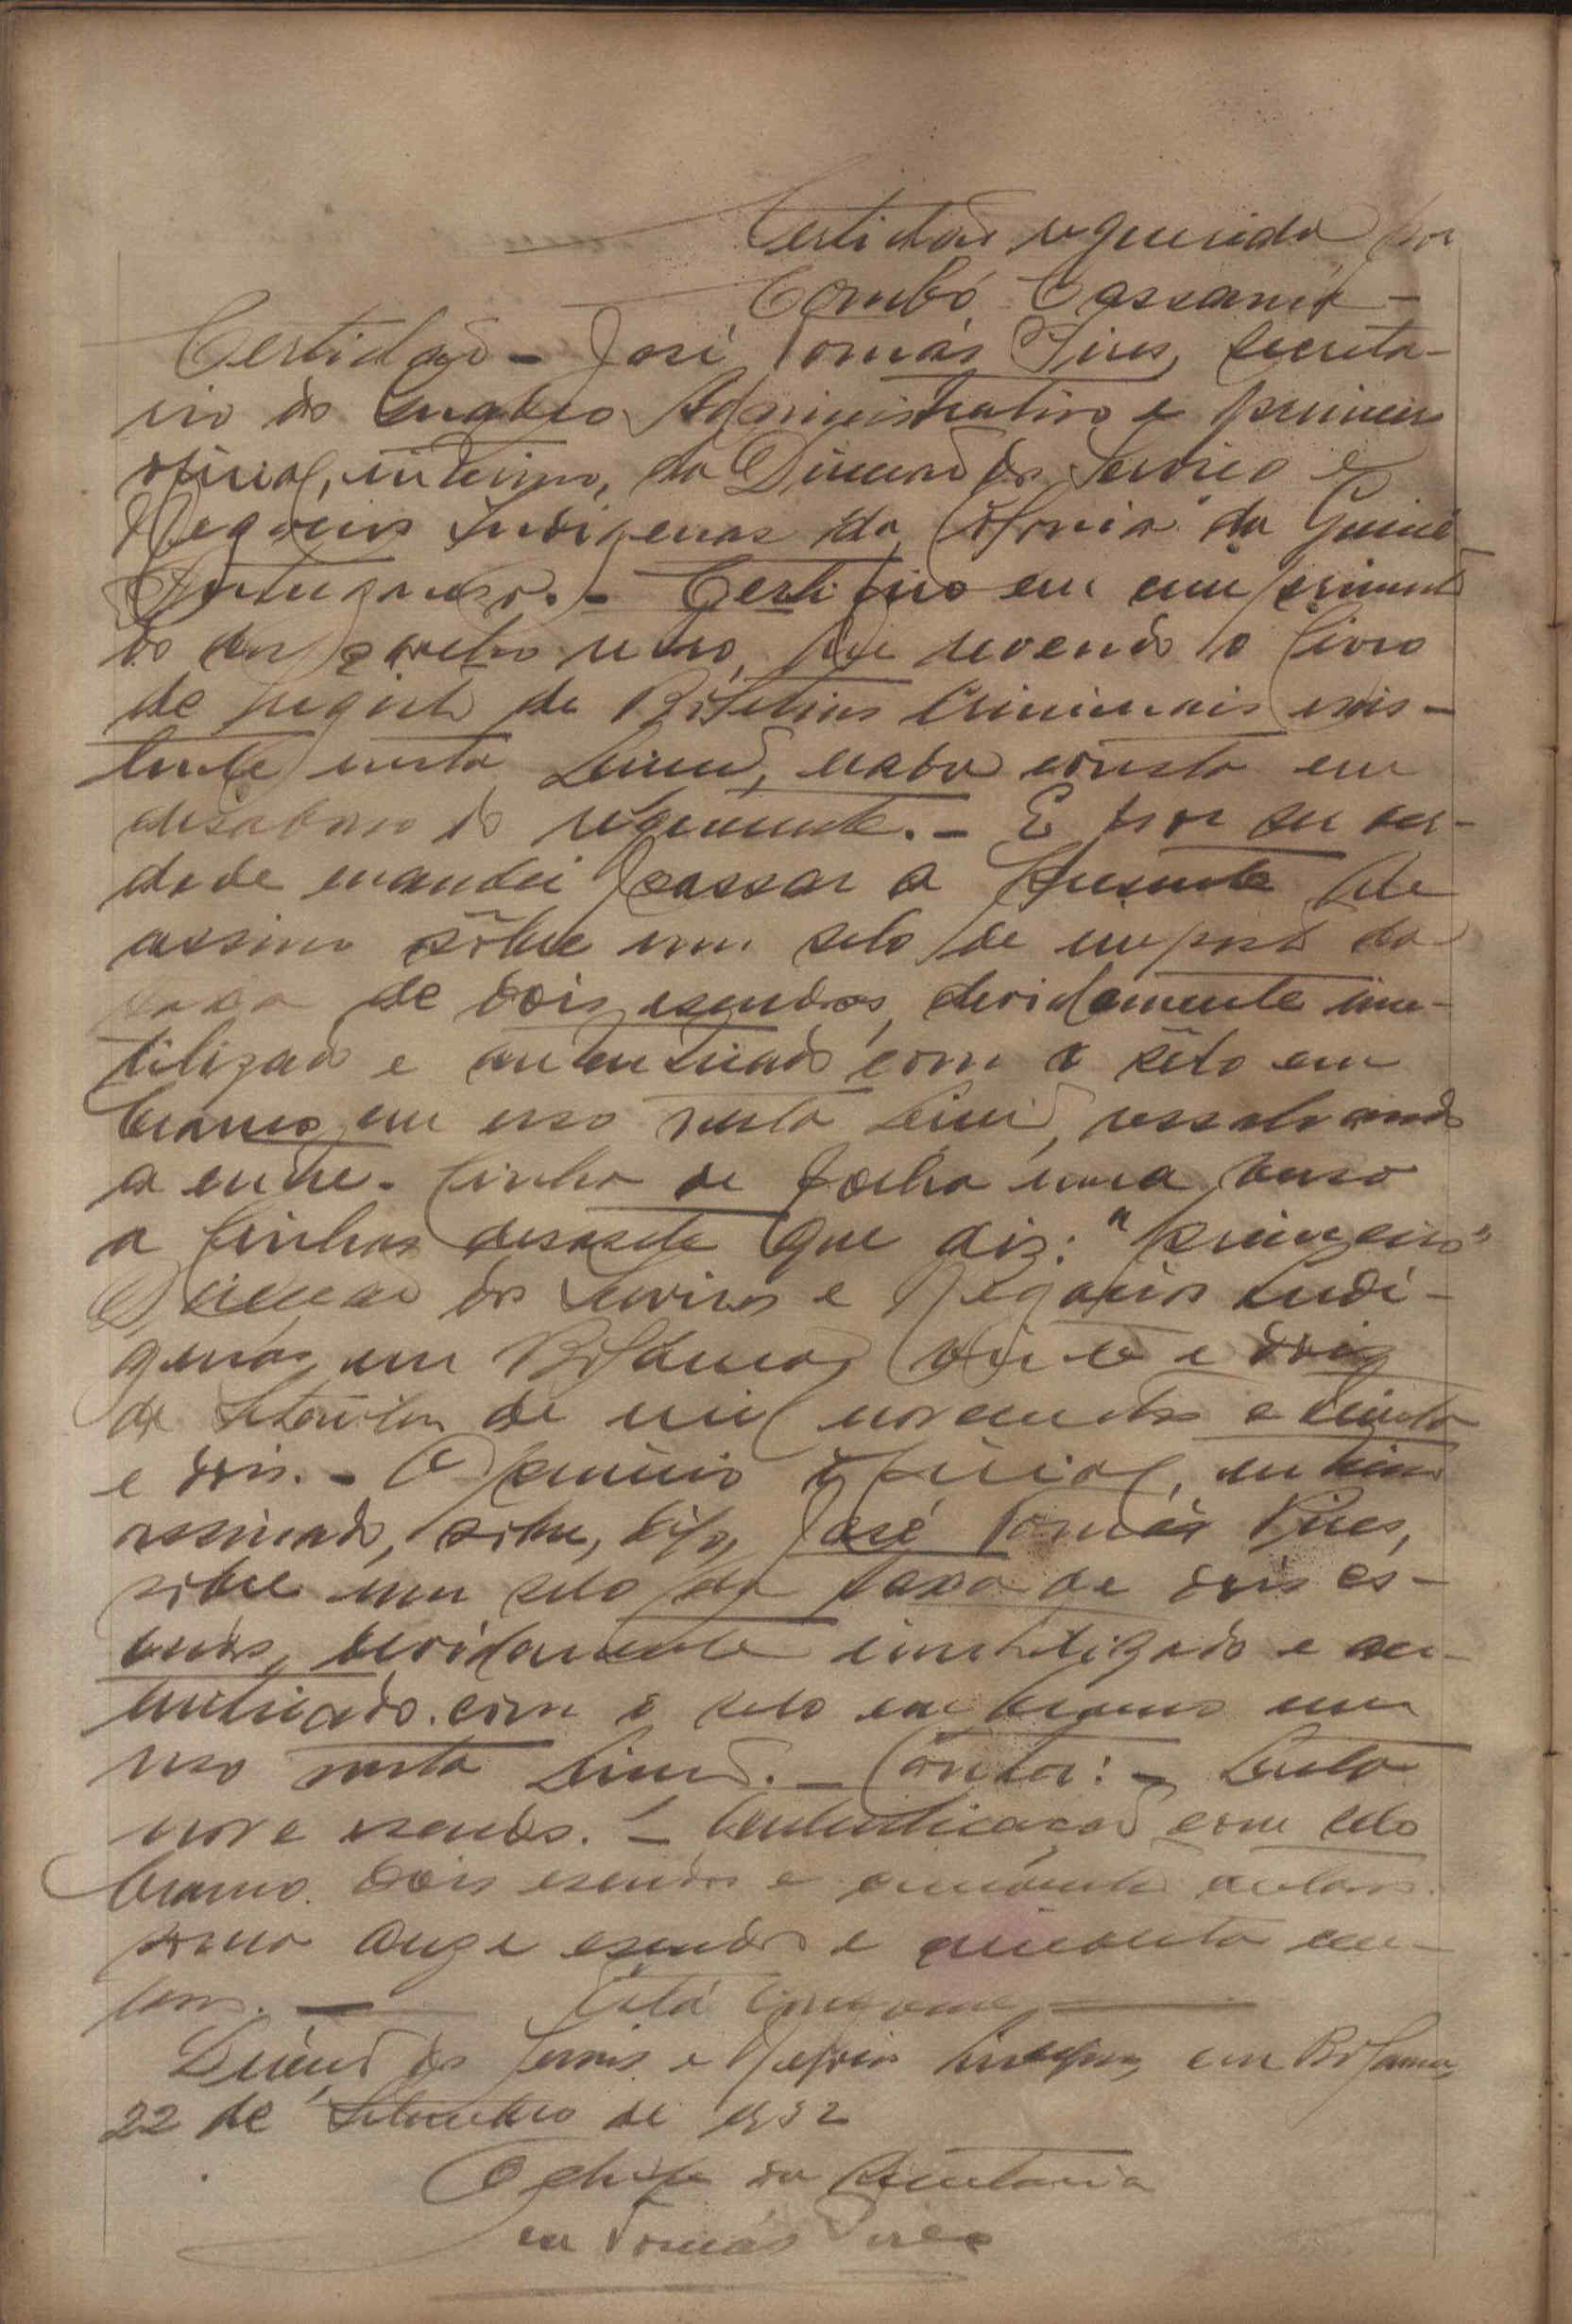 Certidão requerida por
Combó Cassamá -
Certidão - José Tomás Pires, secreta-
rio do quadro Administrativo e primeiro
oficial, interino, da Direcção dos Serviços e
Negocios Indigenas da Colonia da Guiné
Portuguesa. - Certifico em cumprimento
do despacho retro, que revendo o livro
de registo de Boletins Criminais exis-
tente nesta Direcção, nada consta em
desabono do requerente. - E por ser ver-
dade mandei passar a presente que
assino sôbre um selo de imposto da
taxa de dois escudos, devidamente inu-
tilizado e autenticado com o sêlo em
branco em uso nesta Direcção, ressalvando
a entre-linha de folha uma verso
a linhas desasete que diz: "primeiro"
Direcção dos Serviços e Negocios Indi-
genas, em Bolama, vinte e dois
de Setembro de mil novecentos e trinta
e dois. - O primeiro oficial, interino
assinado, sobre, digo, José Tomás Pires,
sobre um selo da taxa de dois es-
cudos, devidamente inutilizado e au-
tenticado com o selo em branco em
uso nesta Direcção. - Conta: -
nove escudos. - Autenticação com selo
branco dois escudos e cincoenta centavos.
soma onze escudos e cincoenta cen-
tavos. - Está conforme
Direcção dos Serviços e Negocios Indigenas, em Bolama,
22 de Setembro de 1932
O chefe da Secretaria
Tomás Pires